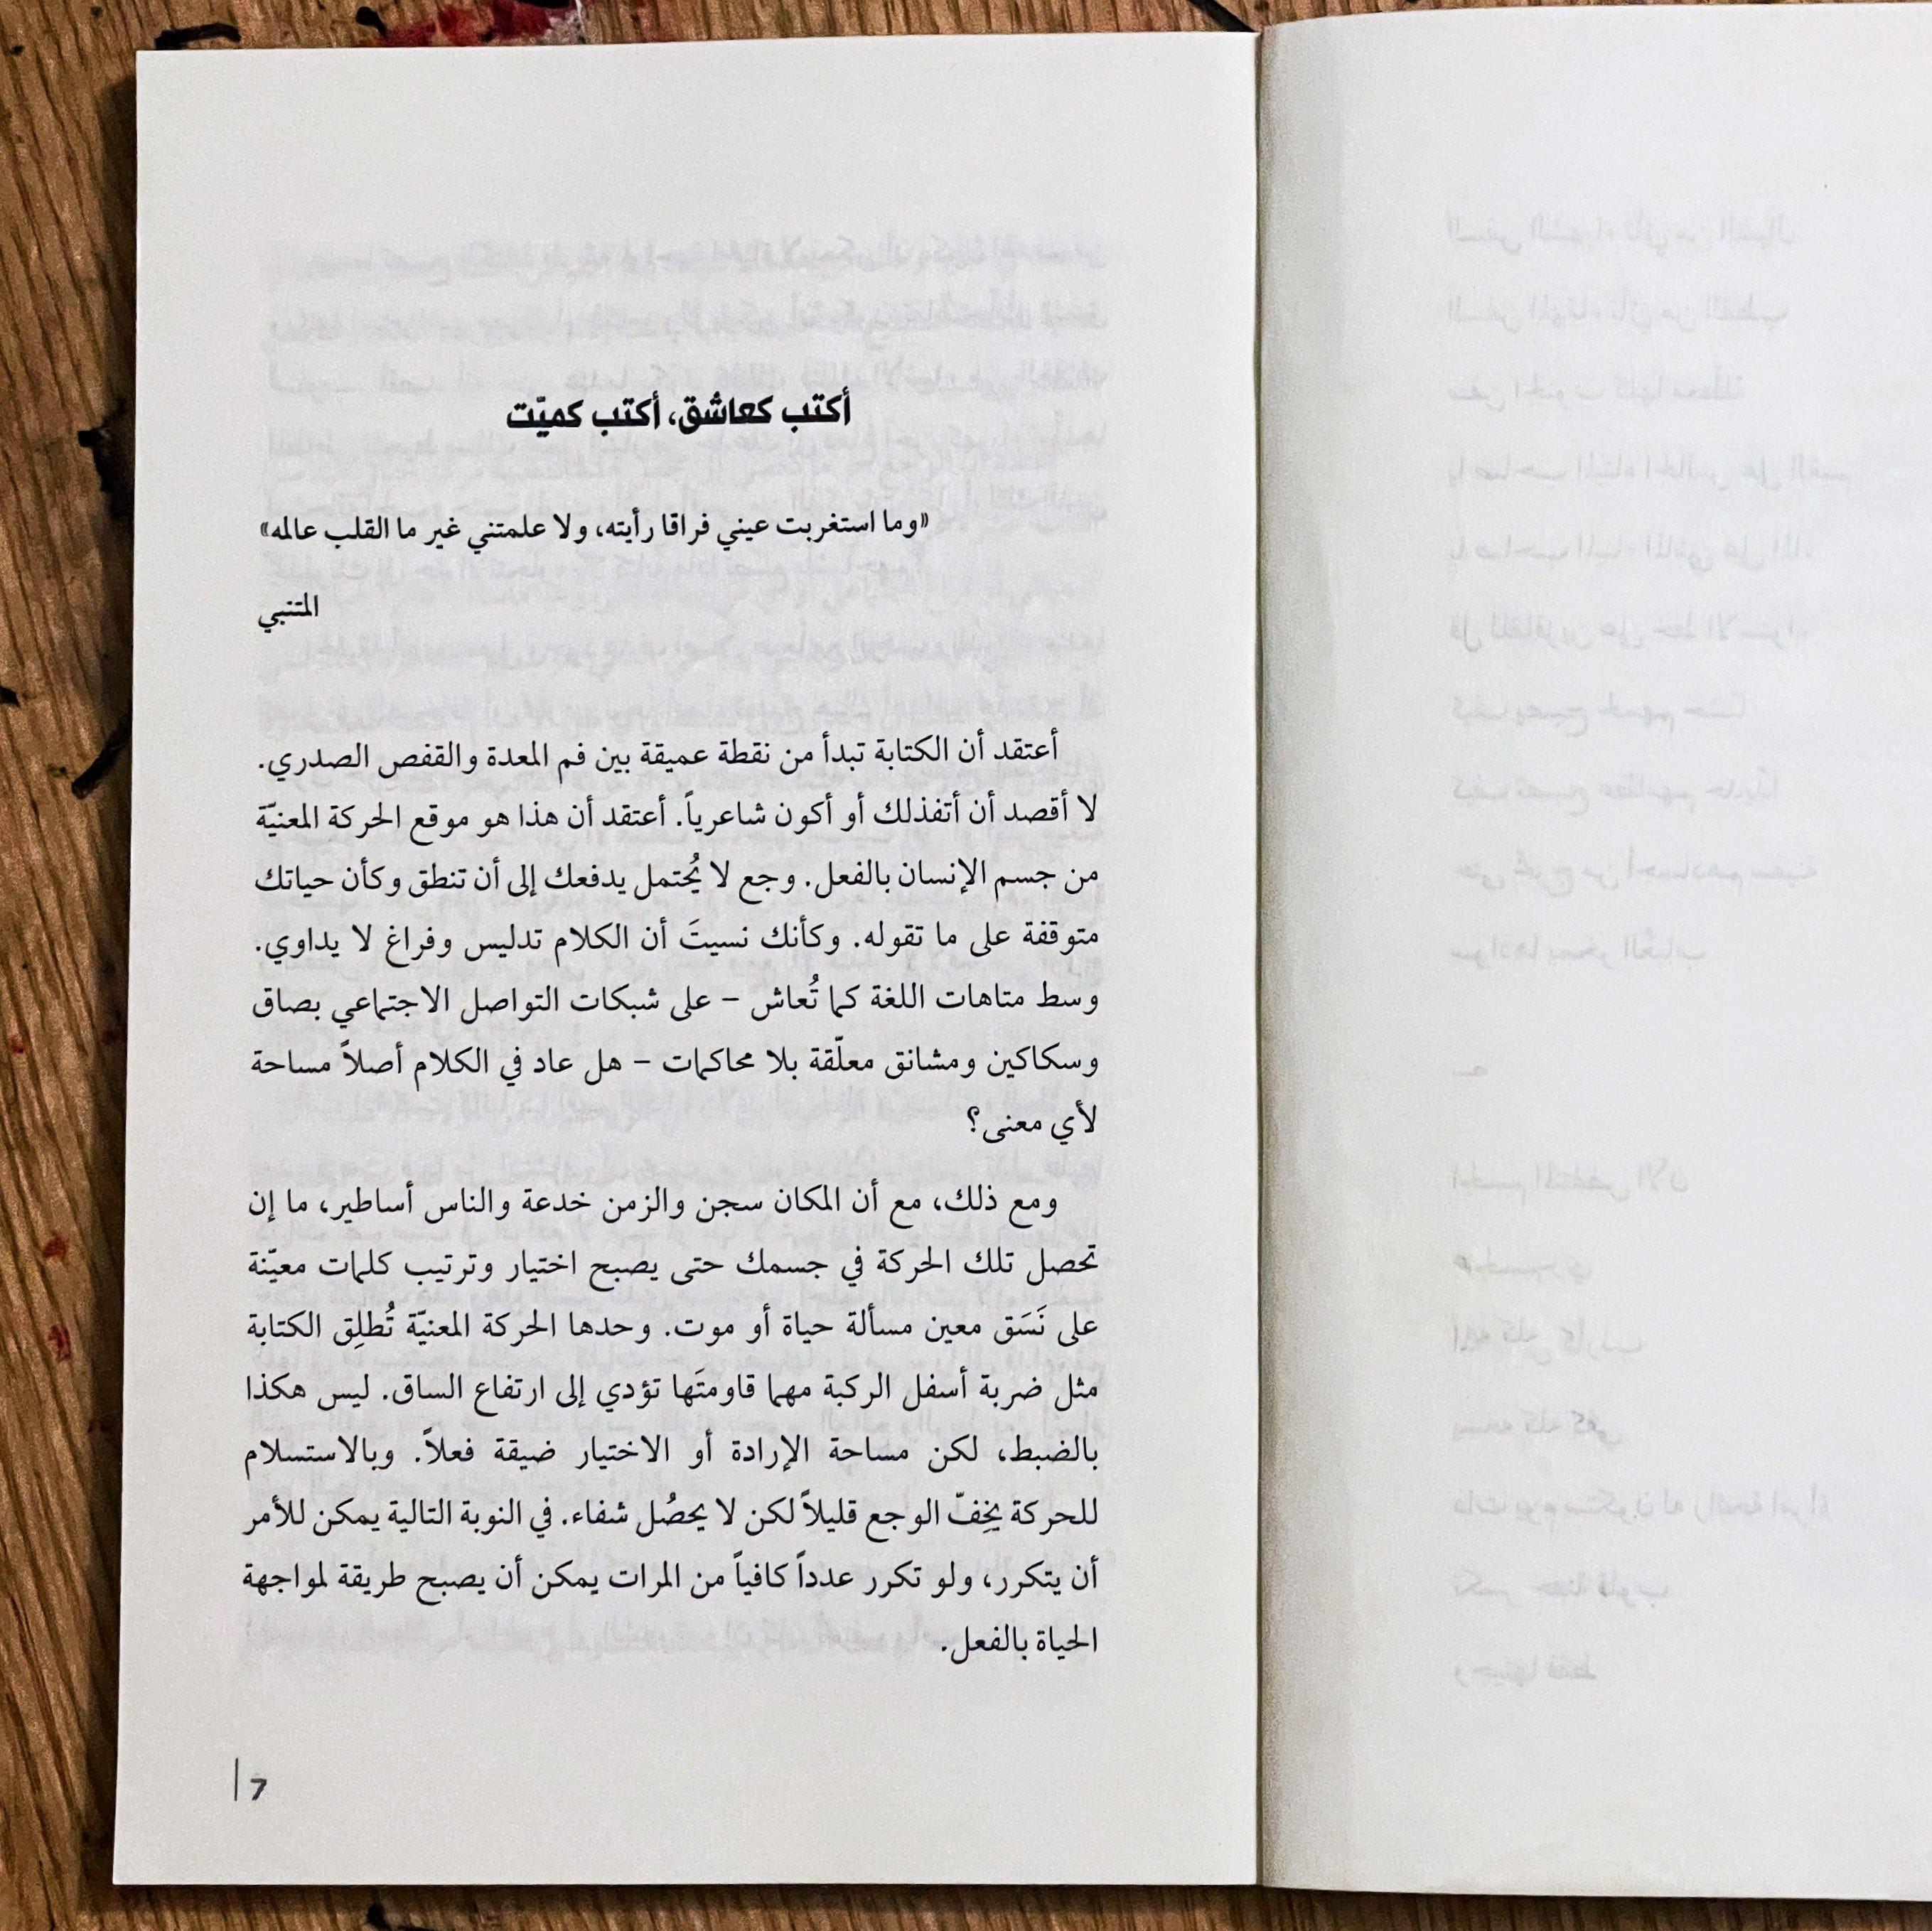 أكتب كعاشق، أكتب كميّت
«وما استغربت عيني فراقا رأيته، ولا علمتني غير ما القلب عالمه»
المتنبي
أعتقد أن الكتابة تبدأ من نقطة عميقة بين فم المعدة والقفص الصدري.
لا أقصد أن أتفذلك أو أكون شاعرياً. أعتقد أن هذا هو موقع الحركة المعنيّة
من جسم الإنسان بالفعل. وجع لا يُحتمل يدفعك إلى أن تنطق وكأن حياتك
متوقفة على ما تقوله. وكأنك نسيتَ أن الكلام تدليس وفراغ لا يداوي.
وسط متاهات اللغة كما تُعاش – على شبكات التواصل الاجتماعي بصاق
وسكاكين ومشانق معلّقة بلا محاكمات – هل عاد في الكلام أصلاً مساحة
لأي معنى؟
ومع ذلك، مع أن المكان سجن والزمن خدعة والناس أساطير، ما إن
تحصل تلك الحركة في جسمك حتى يصبح اختيار وترتيب كلمات معيّنة
على نَسَق معين مسألة حياة أو موت. وحدها الحركة المعنيّة تُطلِق الكتابة
مثل ضربة أسفل الركبة مهما قاومتَها تؤدي إلى ارتفاع الساق. ليس هكذا
بالضبط، لكن مساحة الإرادة أو الاختيار ضيقة فعلاً. وبالاستسلام
للحركة يخِفّ الوجع قليلاً لكن لا يحصُل شفاء. في النوبة التالية يمكن للأمر
أن يتكرر، ولو تكرر عدداً كافياً من المرات يمكن أن يصبح طريقة لمواجهة
الحياة بالفعل.
7